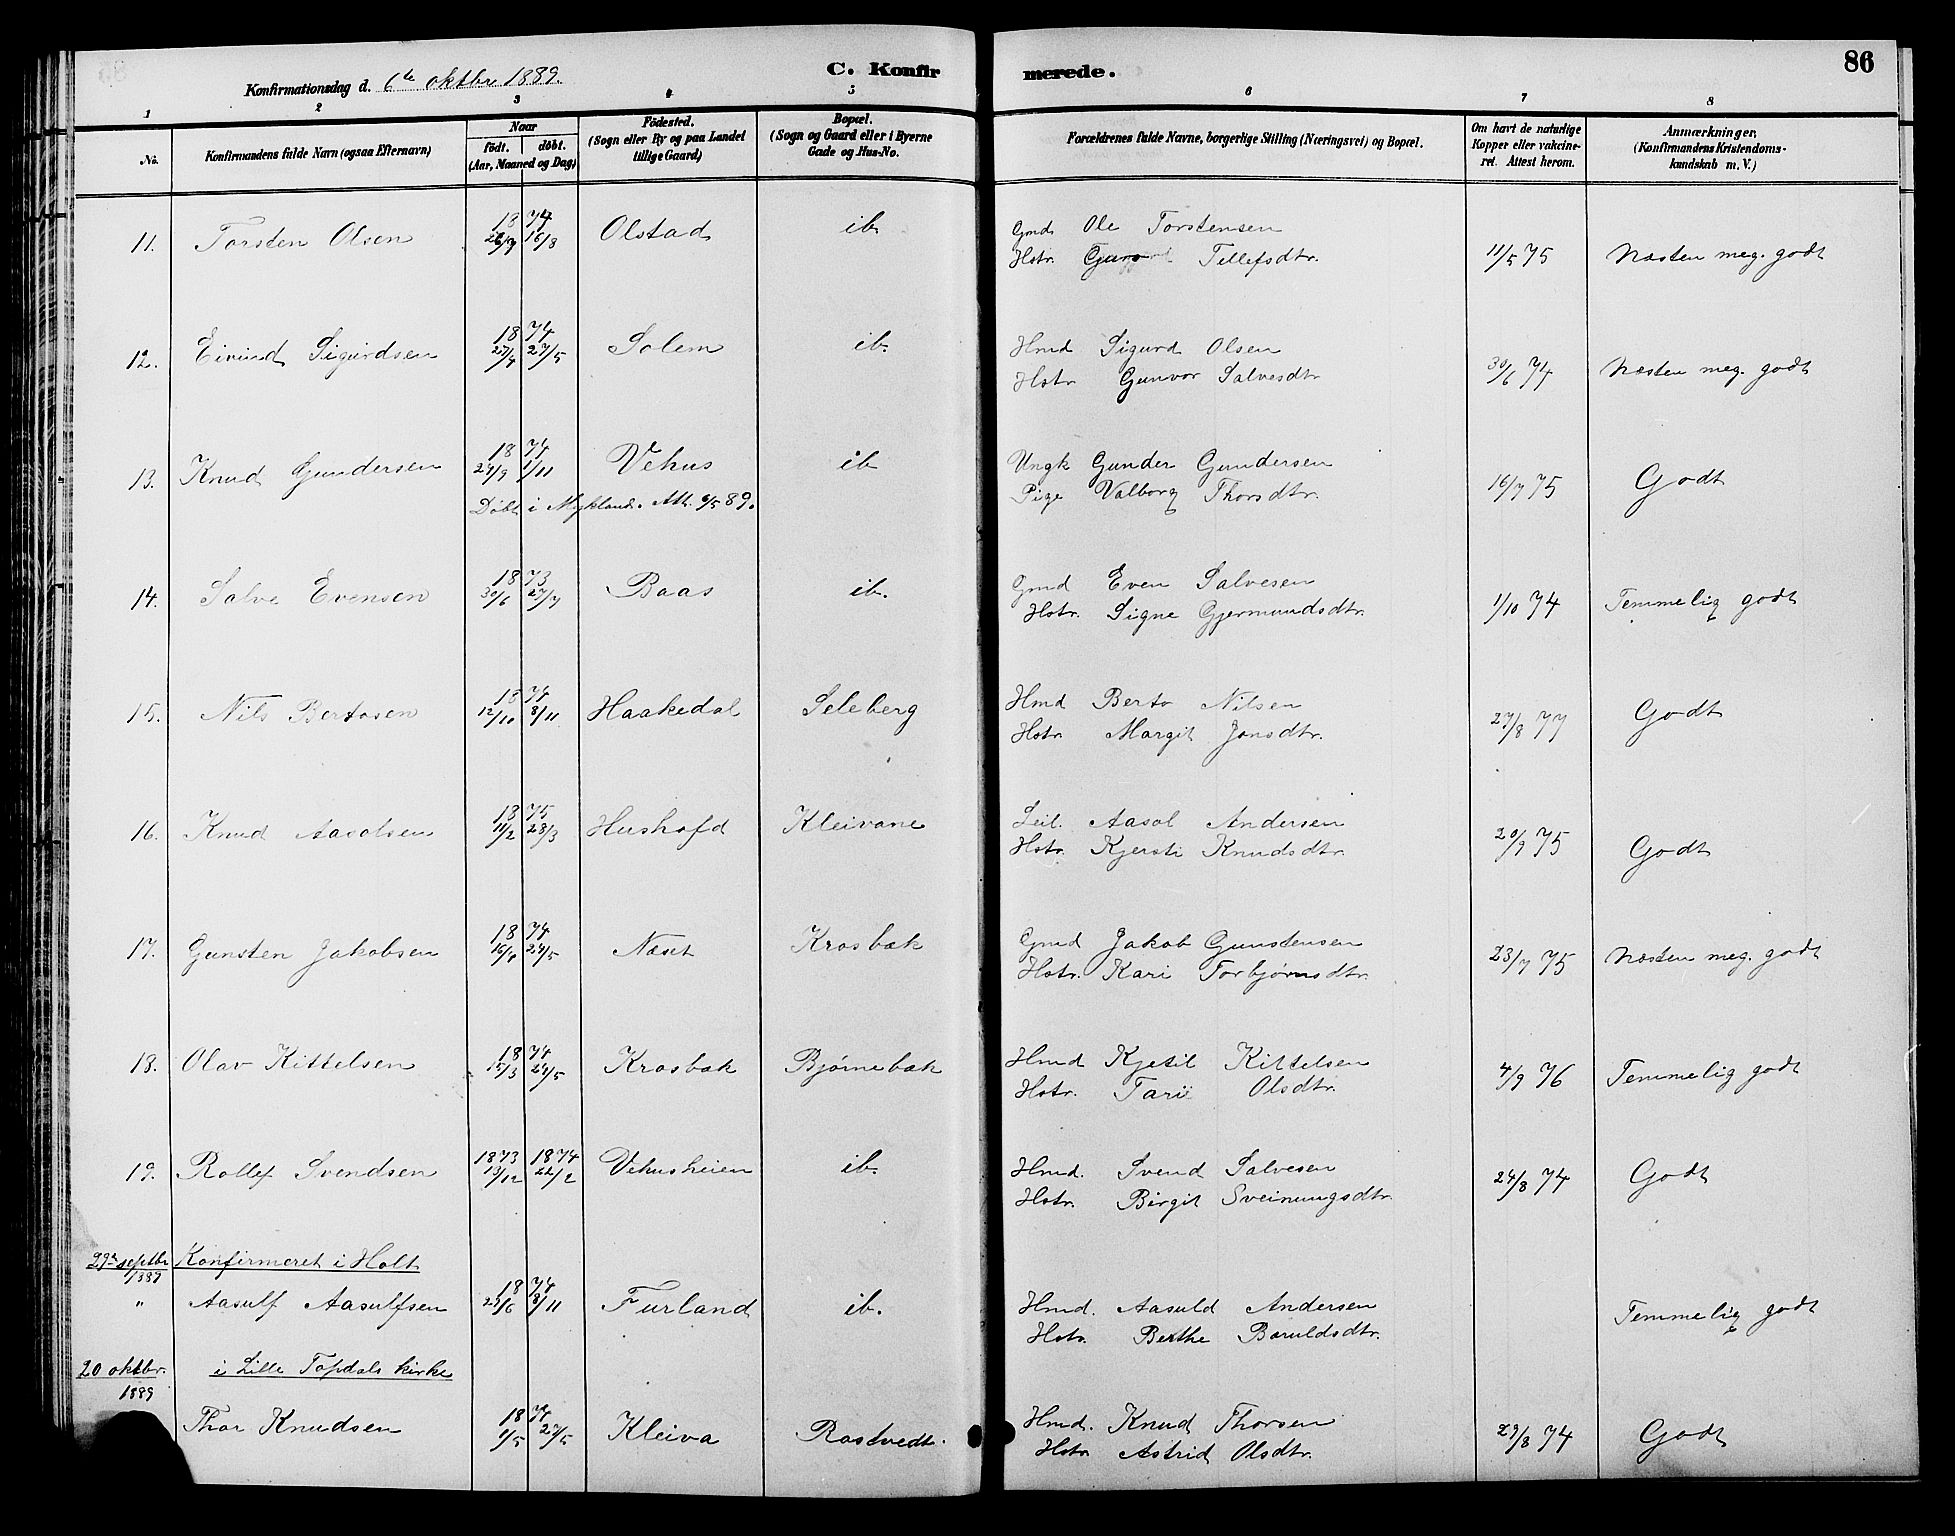 Konfirmationsdag d. 6te oktbr 1889.
C. Konfirmerede.
86
1 2 3 4 5 6 7 8
No. Konfirmandens fulde Navn (ogsaa Efternavn) Naar født. døbt. (Aar, Maaned og Dag) Fødested. (Sogn eller By og paa Landet tillige Gaard) Bopæl. (Sogn og Gaard eller i Byerne Gade og Hus-No. Forældrenes fulde Navne, borgerlige Stilling (Næringsvei) og Bopæl. Om havt de naturlige Kopper eller vakcineret. Attest herom. Anmærkninger. (Konfirmandens Kristendomskundskab m. V.)
11. Torsten Olsen 1874 16/8 Olstad ib Gmd Ole Torstensen 11/5 75 Næsten meg. godt
Hstr. Tellefsdtr.
12. Eivind Sigurdsen 1874 27/4 27/5 Solem ib. Hmd Sigurd Olsen 30/6 74 Næsten meg. godt
Hstr Gunvor Salvesdtr
13. Knud Gundersen 1874 29/9 1/11 Vehus ib Ungk Gunder Gundersen 16/7 75 Godt
Pige Valborg Thorsdtr.
Døbt i Mykland. Att. 6/5 89.
14. Salve Evensen 1873 30/6 27/7 Baas ib. Gmd Even Salvesen 1/10 74 Temmelig godt
Hstr. Signe Gjermundsdtr.
15. Nils Bertosen 1874 12/10 8/11 Haakedal Seleberg Hmd Berto Nilsen 27/8 77 Godt
Hstr. Margit Jonsdtr.
16. Knud Aasolsen 1875 11/2 28/3 Hushofd Kleivane Leil. Aasol Andersen 20/9 75 Godt
Hstr. Kjersti Knudsdtr.
17. Gunsten Jakobsen 1874 16/4 24/5 Næset Krosbæk Gmd Jakob Gunstensen 23/7 75 Næsten meg. godt
Hstr. Kari Torbjørnsdtr.
18. Olav Kittelsen 1874 15/3 24/5 Krosbæk Bjørnebæk Hmd Kjetil Kittelsen 4/9 76 Temmelig godt
Hstr. Tari Olsdtr.
19. Rollef Svendsen 1873 13/12 1874 22/2 Vehusheien ib. Hmd. Svend Salvesen 24/8 74 Godt
Hstr. Birgit Sveinungsdtr.
29de septbr 1889 Konfirmeret i Holt
" Aasulf Aasulfsen 1874 29/6 8/11 Furland ib. Hmd. Aasuld Andersen Temmelig godt
Hstr. Berthe Baruldsdtr.
20 oktbr. 1889 i Lille Topdals kirke
Thor Knudsen 1874 1/5 27/5 Kleiva Rostvedt. Hmd. Knud Thorsen 29/8 74 Godt
Hstr Astrid Olsdtr.